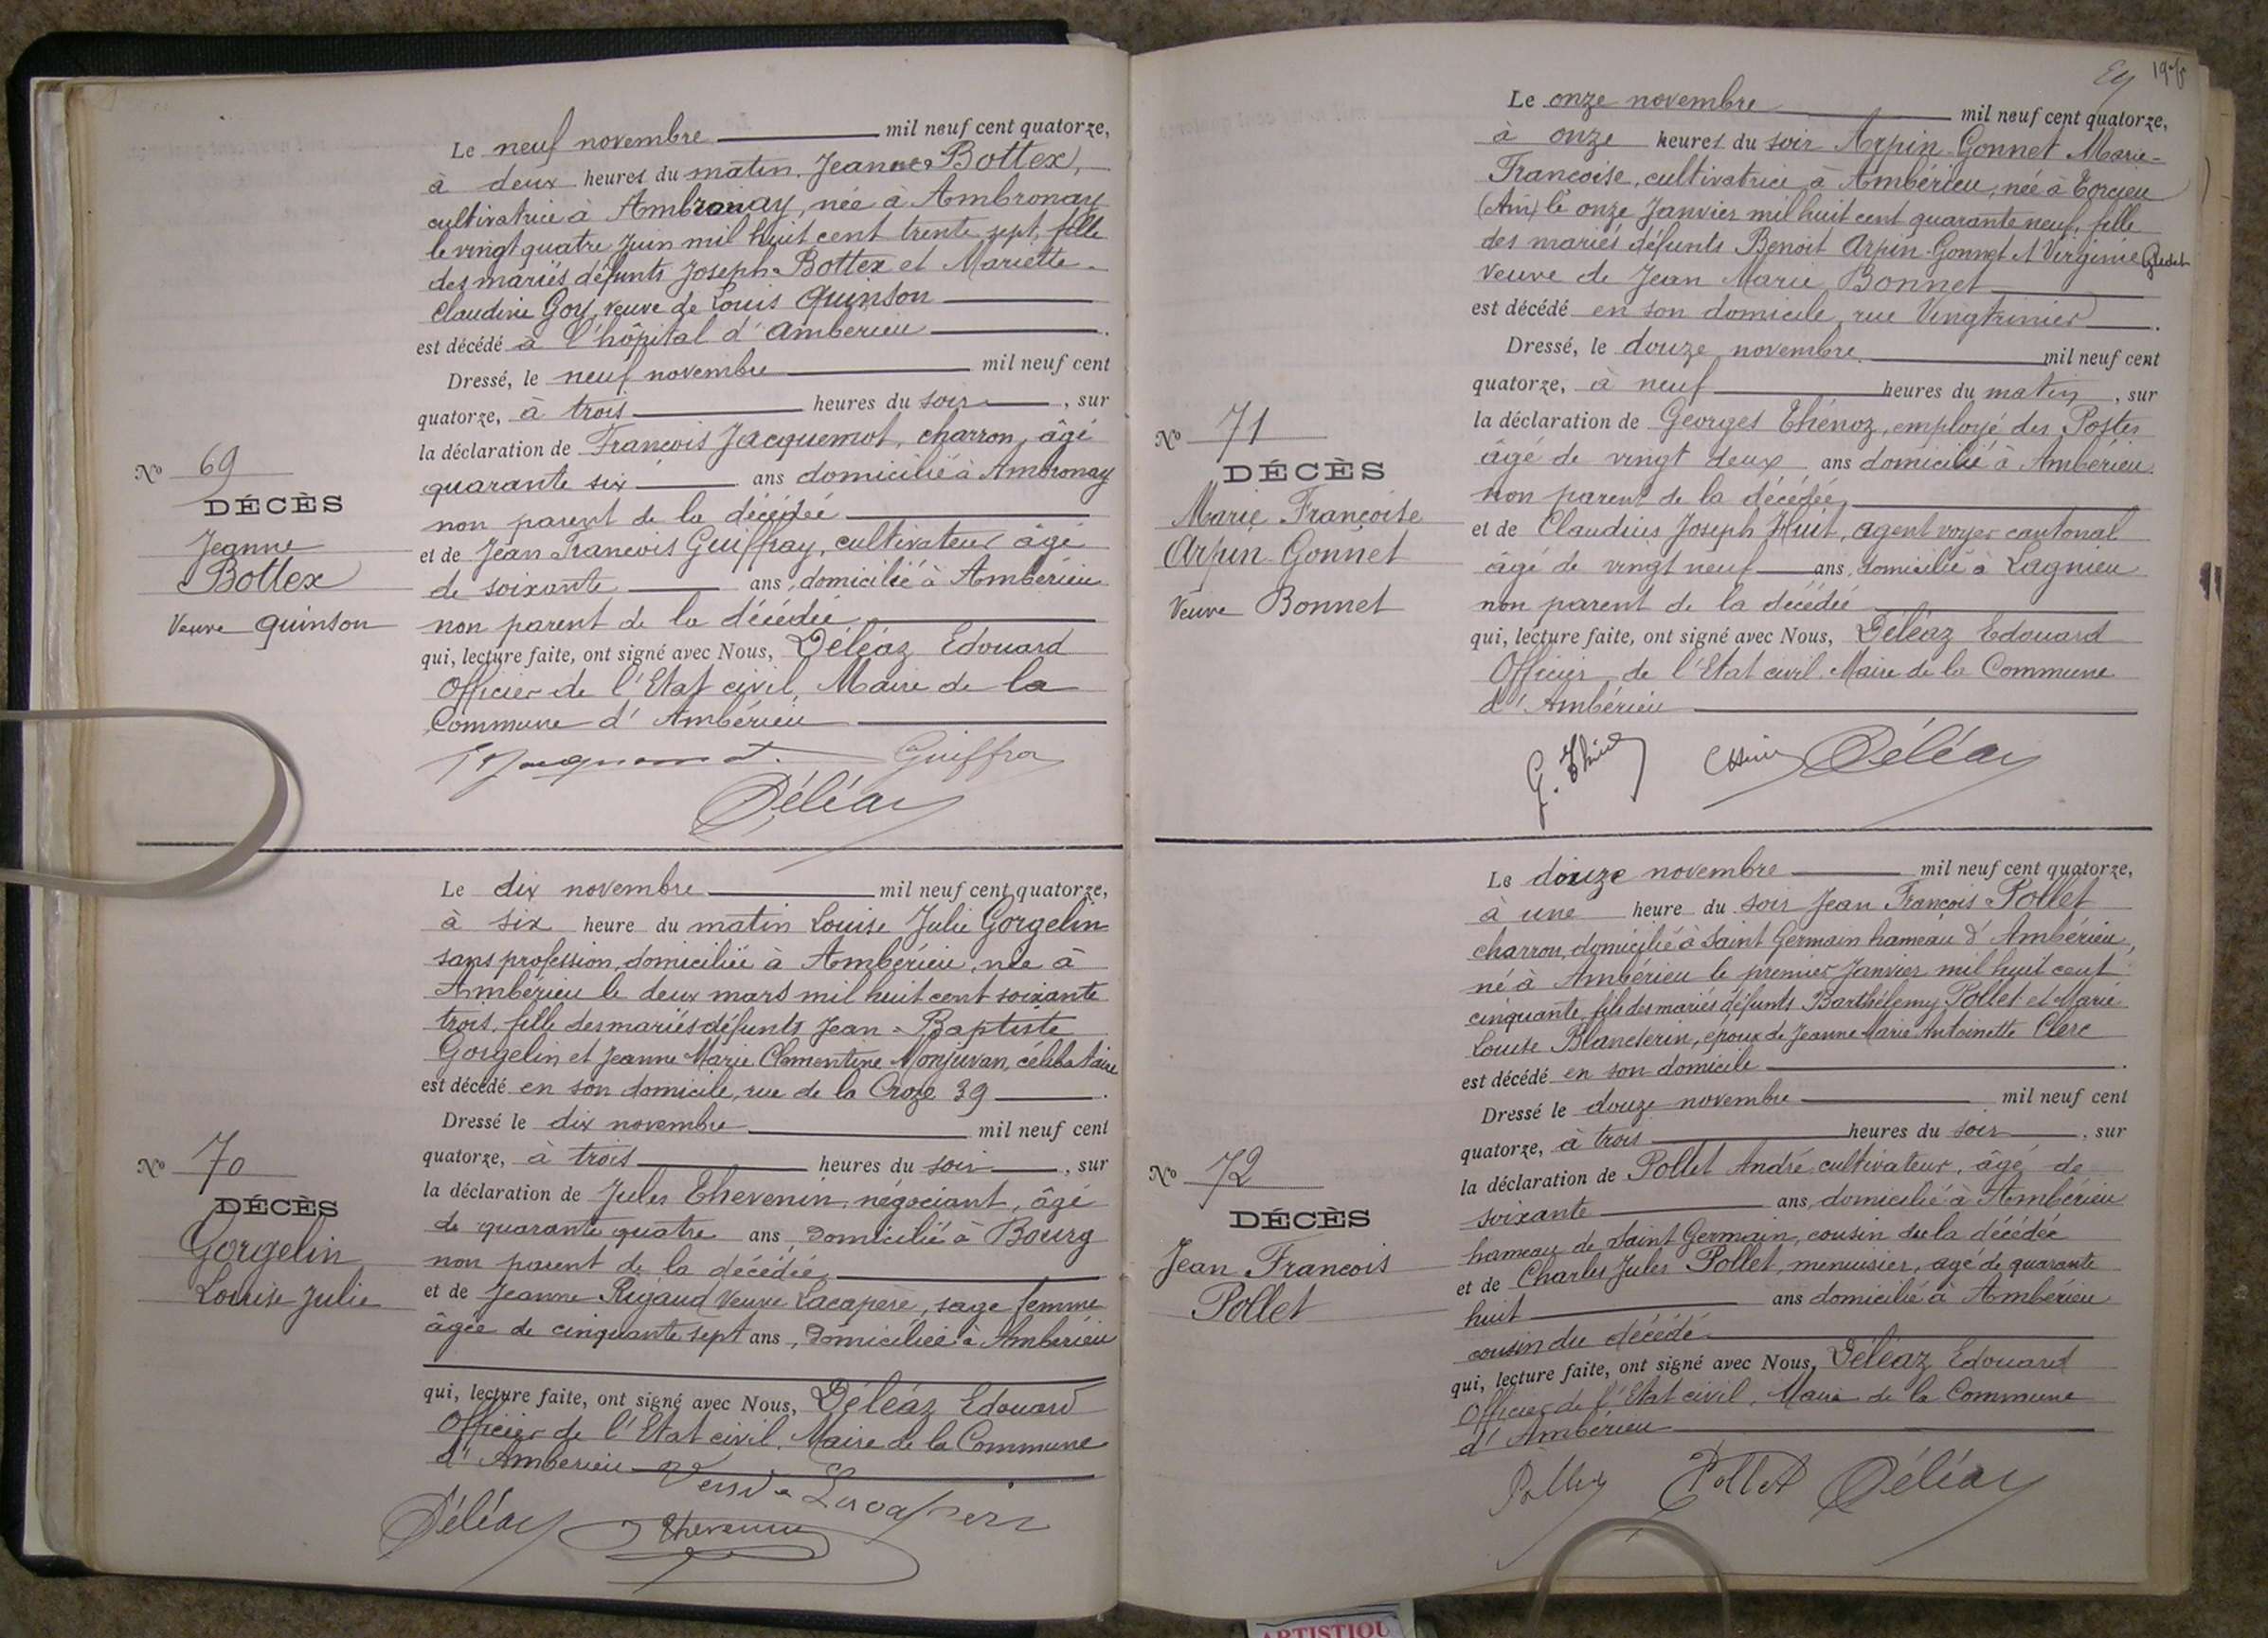 Le neuf novembre mil neuf cent quatorze,
à deux heures du matin, Jeanne Bottex,
cultivatrice à Ambronay, née à Ambronay
le vingt quatre Juin mil huit cent trente sept, fille
des mariés défunts Joseph Bottex et Mariette
Claudine Goy, veuve de Louis Quinson
est décédé à l'hôpital d'Ambérieu.
Dressé, le neuf novembre mil neuf cent
quatorze, à trois heures du soir, sur
la déclaration de François Jacquemot, charron, âgé
quarante six ans domicilié à Ambronay
non parent de la décédée
et de Jean François Guiffray, cultivateur âgé
de soixante ans, domicilié à Ambérieu
non parent de la décédée
qui, lecture faite, ont signé avec Nous, Déléaz Edouard
Officier de l'Etat civil, Maire de la
Commune d'Ambérieu
No 69
DÉCÈS
Jeanne
Bottex
Veuve Quinson
Guiffra
Déléaz
Le dix novembre mil neuf cent quatorze,
à six heure du matin Louise Julie Gorgelin
sans profession, domiciliée à Ambérieu, née à
Ambérieu le deux mars mil huit cent soixante
trois, fille des mariés défunts Jean-Baptiste
Gorgelin et Jeanne Marie Clementine Monjuvan, célibataire
est décédé en son domicile, rue de la Croze 39.
Dressé le dix novembre mil neuf cent
quatorze, à trois heures du soir, sur
la déclaration de Jules Thevenin, négociant, âgé
de quarante quatre ans, domicilié à Bourg
non parent de la décédée
et de Jeanne Rigaud Veuve Lacapere, sage femme
âgée de cinquante sept ans, domiciliée à Ambérieu
qui, lecture faite, ont signé avec Nous, Déléaz Edouard
Officier de l'Etat civil, Maire de la Commune
d'Ambérieu
No 70
DÉCÈS
Gorgelin
Louise Julie
Déléaz Thevenin
Le onze novembre mil neuf cent quatorze,
à onze heures du soir Arpin-Gonnet Marie-
Françoise, cultivatrice à Ambérieu, née à Torcieu
(Ain) le onze Janvier mil huit cent quarante neuf, fille
des mariés défunts Benoit Arpin-Gonnet et Virginie
veuve de Jean Marie Bonnet
est décédé en son domicile, rue Vingtrinier.
Dressé, le douze novembre mil neuf cent
quatorze, à neuf heures du matin, sur
la déclaration de Georges Thénoz, employé des Postes
âgé de vingt deux ans domicilié à Ambérieu
non parent de la décédée
et de Claudius Joseph Huit, agent voyer cantonal
âgé de vingt neuf ans, domicilié à Lagnieu
non parent de la décédée
qui, lecture faite, ont signé avec Nous, Déléaz Edouard
Officier de l'Etat civil. Maire de la Commune
d'Ambérieu
No 71
DÉCÈS
Marie Françoise
Arpin-Gonnet
Veuve Bonnet
Déléaz
Le douze novembre mil neuf cent quatorze,
à une heure du soir Jean François Pollet
charron, domicilié à Saint Germain hameau d'Ambérieu,
né à Ambérieu le premier Janvier mil huit cent
cinquante, fils des mariés défunts Barthélemy Pollet et Marie
Louise Blancherin, époux de Jeanne Marie Antoinette Clerc
est décédé en son domicile.
Dressé le douze novembre mil neuf cent
quatorze, à trois heures du soir, sur
la déclaration de Pollet André cultivateur, âgé de
soixante ans, domicilié à Ambérieu
hameau de Saint Germain, cousin de la décédée
et de Charles Jules Pollet, menuisier, âgé de quarante
huit ans domicilié à Ambérieu
cousin du décédé
qui, lecture faite, ont signé avec Nous, Déléaz Edouard
Officier de l'Etat civil, Maire de la Commune
d'Ambérieu
No 72
DÉCÈS
Jean François
Pollet
Pollet Pollet Déléaz
ARTISTIQU